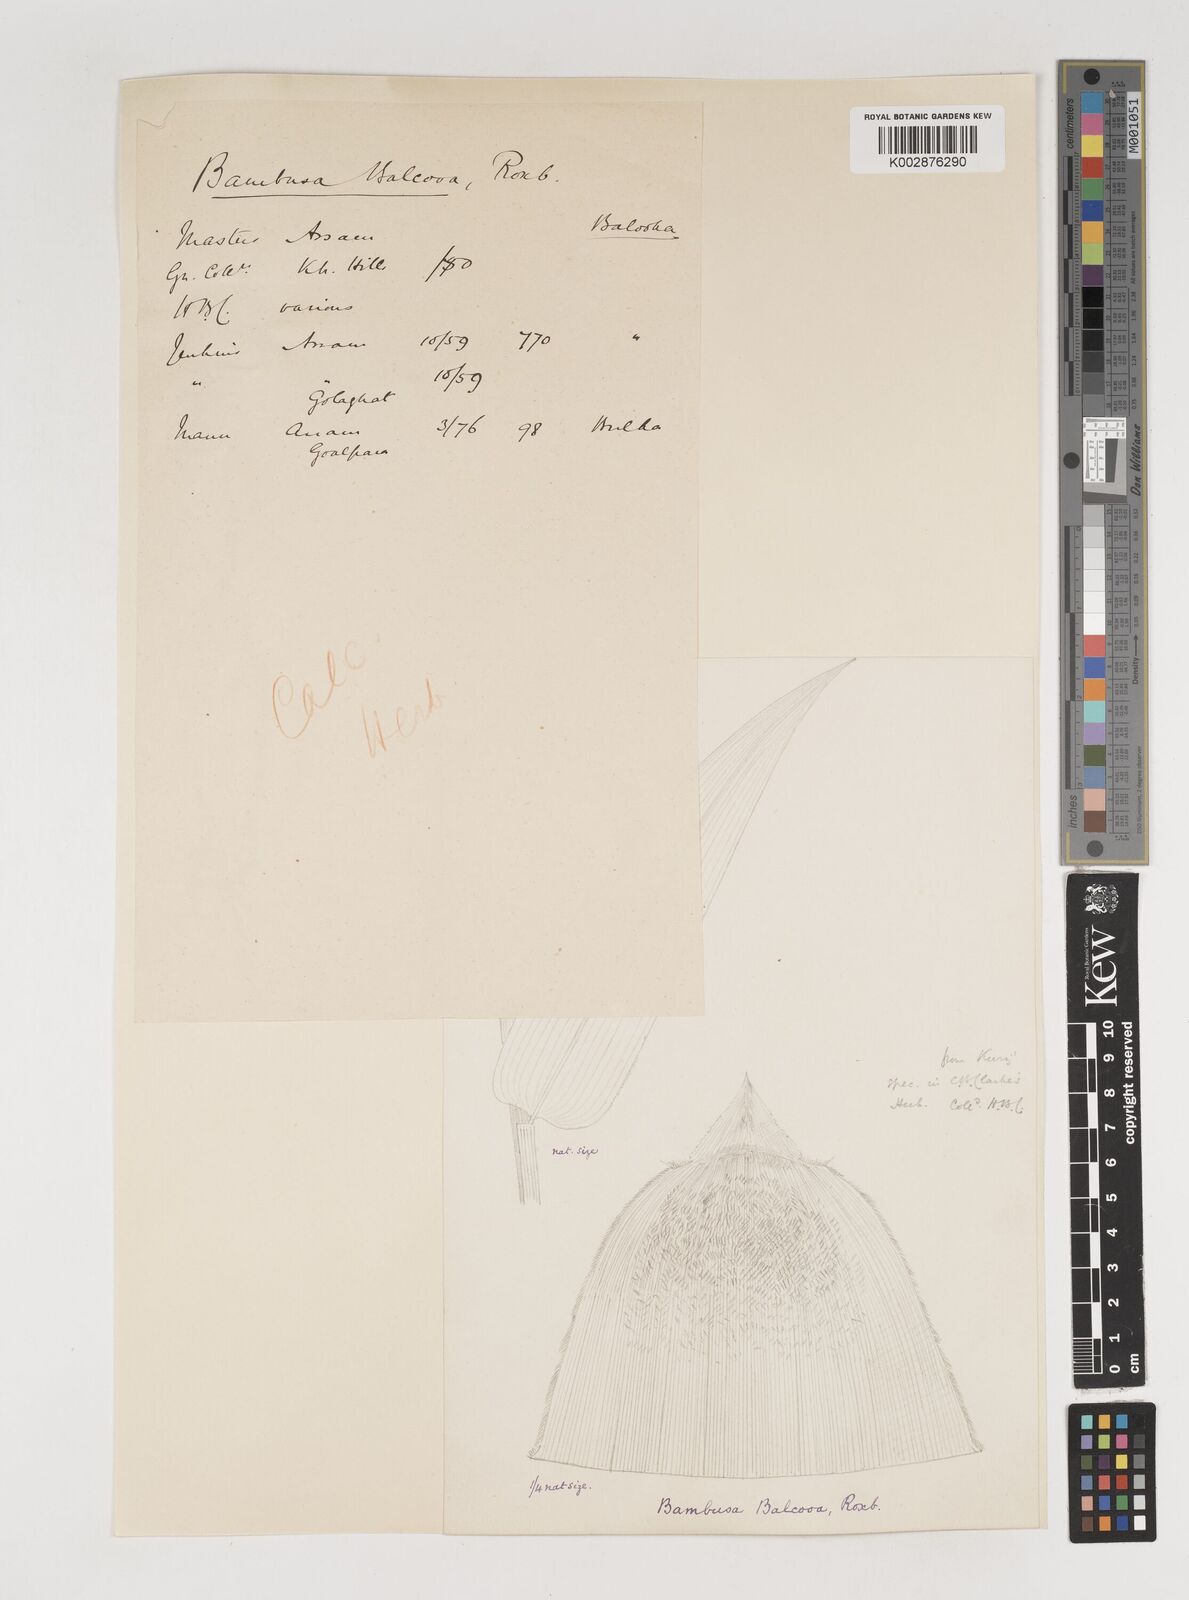 ROYAL BOTANIC GARDENS KEW
K002876290
Bambusa Balcooa, Roxb.
Balooka
Masters Assam
Gn. Collr. Kh. Hills /50
H.B.C. various
Jenkins Assam 10/59 770 "
" " 10/59
Golaghat
Mann Assam 3/76 98
Goalpara
Calc
Herb.
from Kurz'
spec. in C.B. Clarke's
Herb. Colld. H.B.C.
nat. size
1/4 nat size.
Bambusa Balcooa, Roxb.
centimeters
M001051
Don Williams
Density
inches
Royal Botanic Gardens
Kew
0 1 2 3 4 5 6 7 8 9 10
cm
copyright reserved